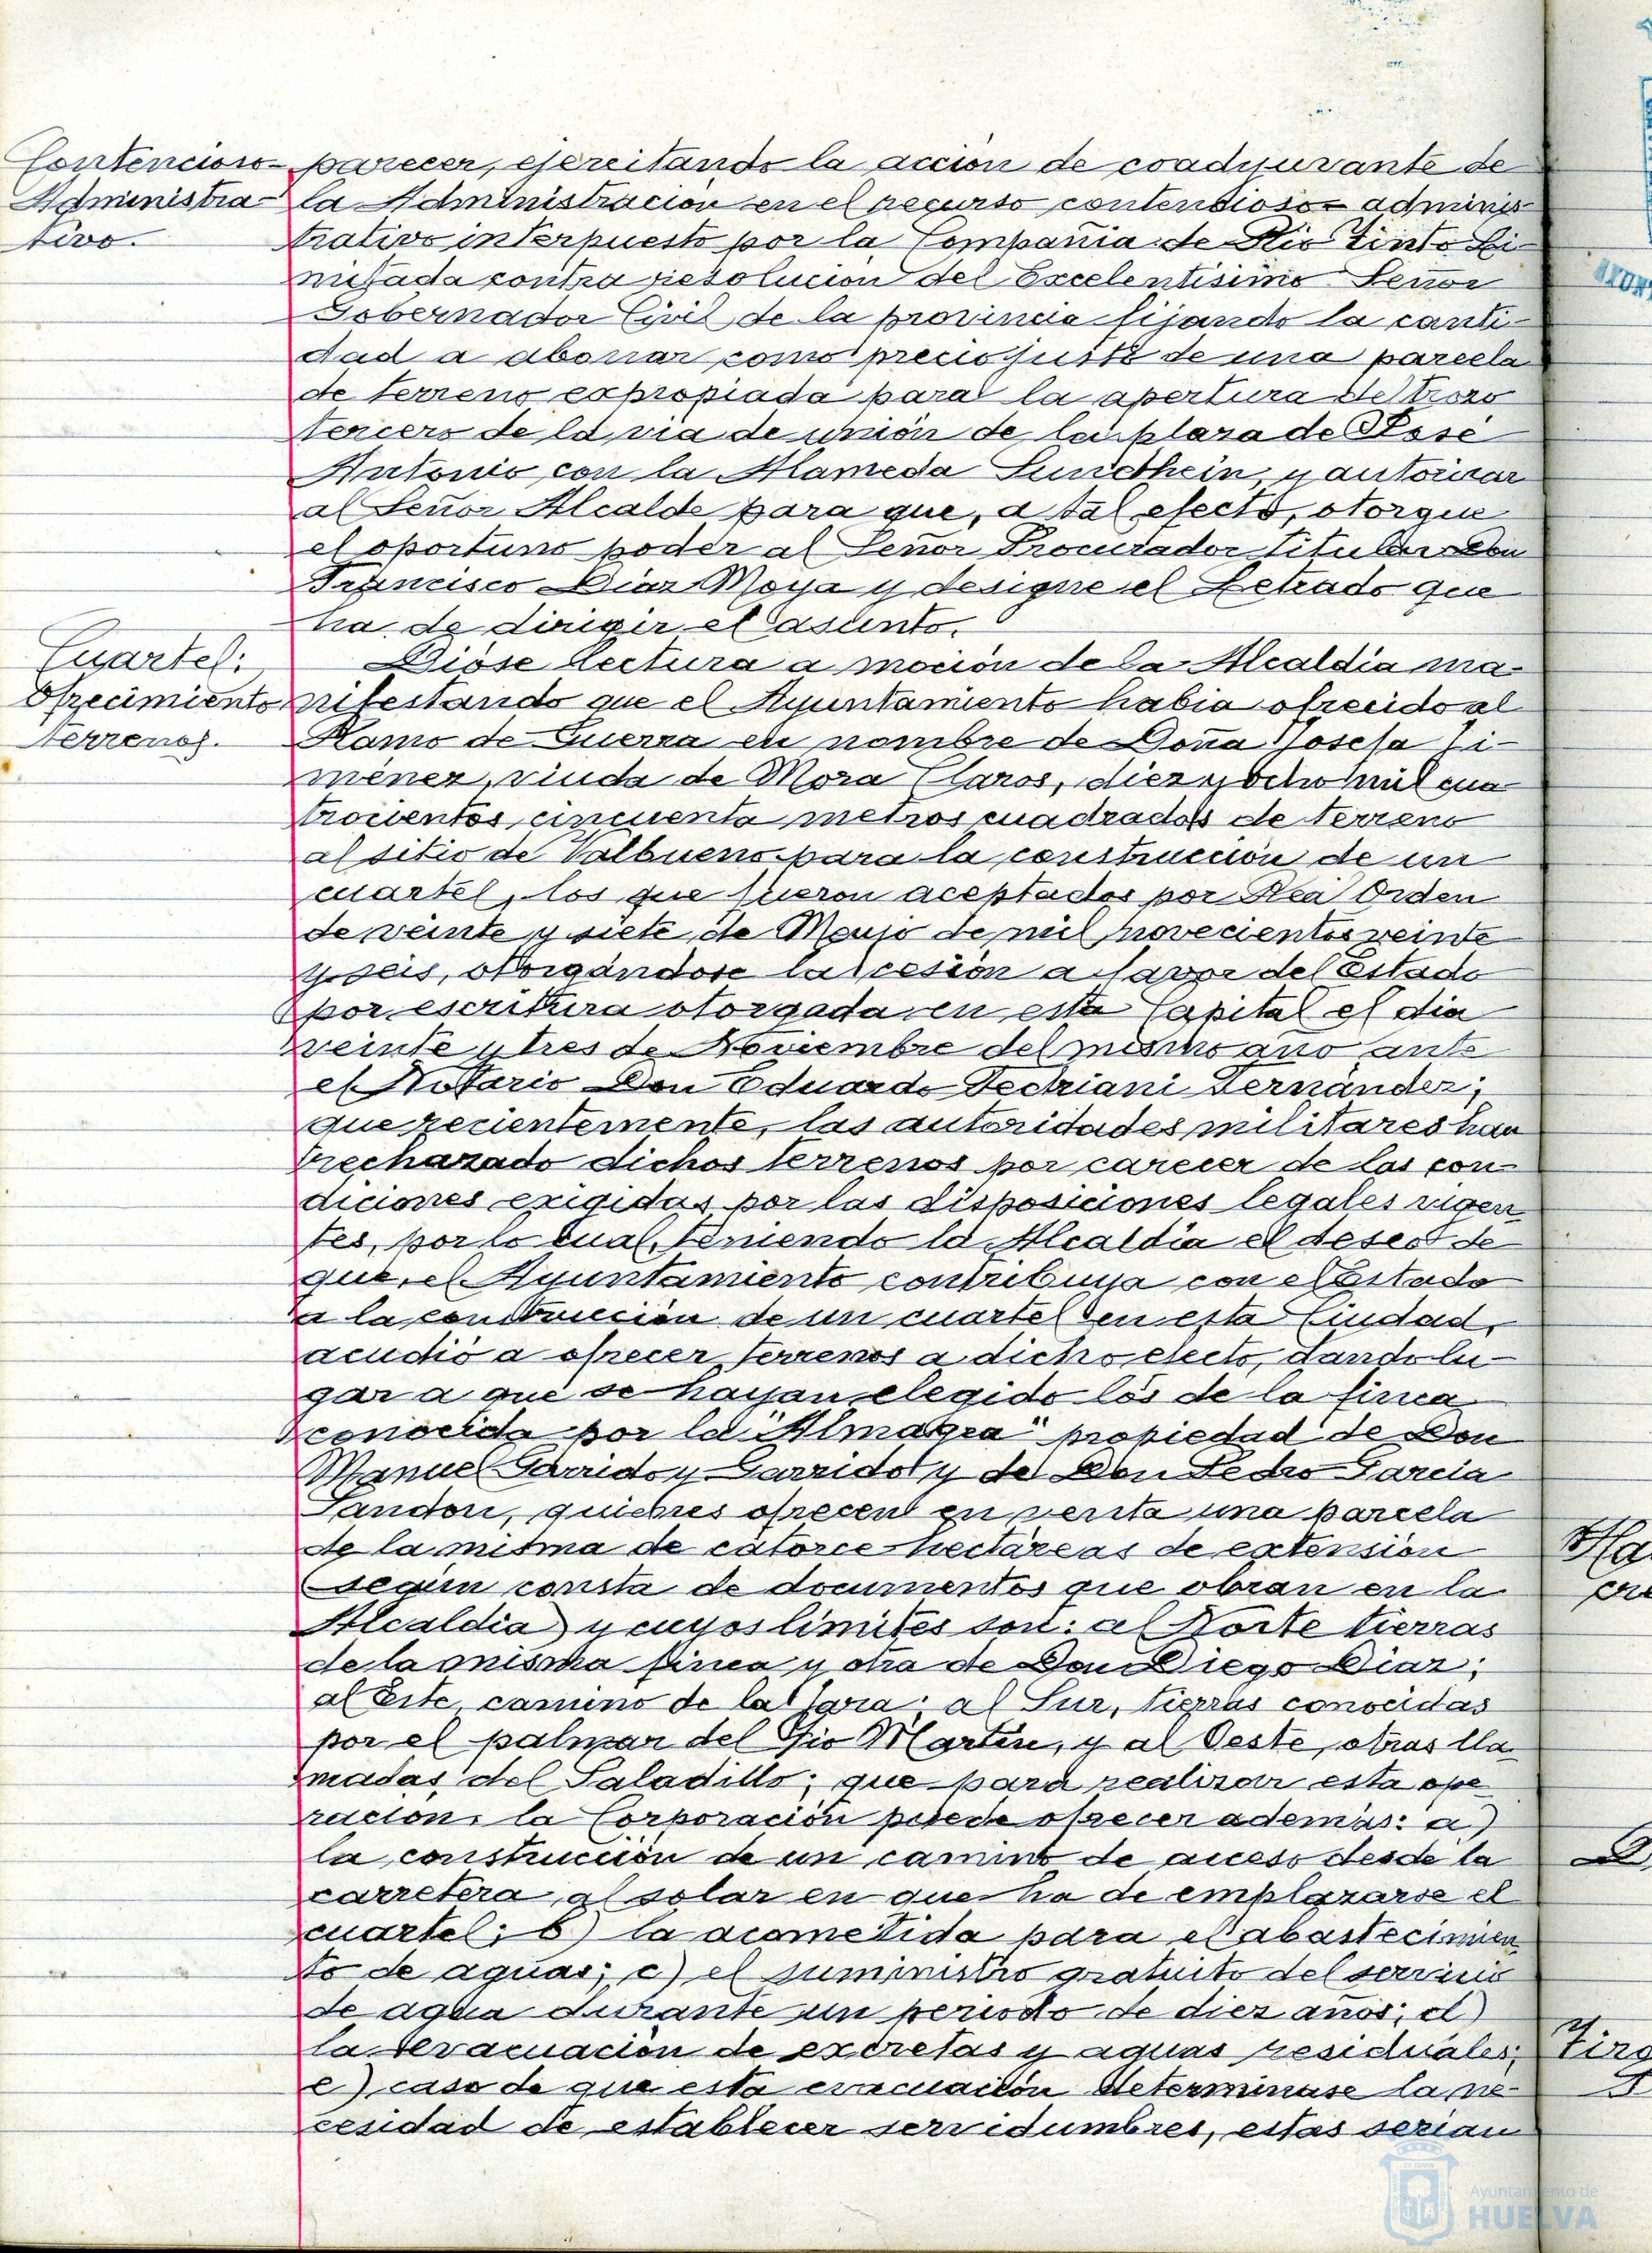 Contencioso-
Administra-
tivo.
parecer, ejercitando la acción de coadyuvante de
la Administración en el recurso contencioso-adminis-
trativo interpuesto por la Compañia de Rio Tinto Li-
mitada contra resolución del Excelentisimo Señor
Gobernador Civil de la provincia fijando la canti-
dad a abonar como precio justo de una parcela
de terreno expropiada para la apertura del trozo
tercero de la via de unión de la plaza de José
Antonio con la Alameda Sundhein, y autorizar
al Señor Alcalde para que, a tal efecto, otorgue
el oportuno poder al Señor Procurador titular Don
Francisco Diaz Moya y designe el Letrado que
ha de dirigir el asunto.
Cuartel:
Ofrecimiento
terrenos.
Dióse lectura a moción de la Alcaldia ma-
nifestando que el Ayuntamiento habia ofrecido al
Ramo de Guerra en nombre de Doña Josefa Ji-
ménez, viuda de Mora Claros, diez y ocho mil cua-
trocientos cincuenta metros cuadrados de terreno
al sitio de Valbueno para la construcción de un
cuartel, los que fueron aceptados por Real Orden
de veinte y siete de Mayo de mil novecientos veinte
y seis, otorgándose la cesión a favor del Estado
por escritura otorgada en esta Capital el dia
veinte y tres de Noviembre del mismo año ante
el Notario Don Eduardo Fedriani Fernández;
que recientemente, las autoridades militares han
rechazado dichos terrenos por carecer de las con-
diciones exigidas por las disposiciones legales vigen-
tes, por lo cual, teniendo la Alcaldia el deseo de
que el Ayuntamiento contribuya con el Estado
a la construcción de un cuartel en esta Ciudad,
acudió a ofrecer terrenos a dicho efecto, dando lu-
gar a que se hayan elegido los de la finca
conocida por la "Almagra" propiedad de Don
Manuel Garrido y Garrido y de Don Pedro Garcia
quienes ofrecen en venta una parcela
de la misma de catorce hectáreas de extensión
(según consta de documentos que obran en la
Alcaldia) y cuyos limites son: al Norte tierras
de la misma finca y otra de Don Diego Diaz;
al Este, camino de la Jara; al Sur, tierras conocidas
por el palmar del Tio Martin, y al Oeste, otras lla-
madas del Saladillo; que para realizar esta ope-
racion, la Corporación puede ofrecer además: a)
la construcción de un camino de acceso desde la
carretera al solar en que ha de emplazarse el
cuartel; b) la acometida para el abastecimien-
to de aguas; c) el suministro gratuito del servicio
de agua durante un periodo de diez años; d)
la evacuación de excretas y aguas residuales;
e) caso de que esta evacuación determinase la ne-
cesidad de establecer servidumbres, estas serian
Ayuntamiento de
HUELVA